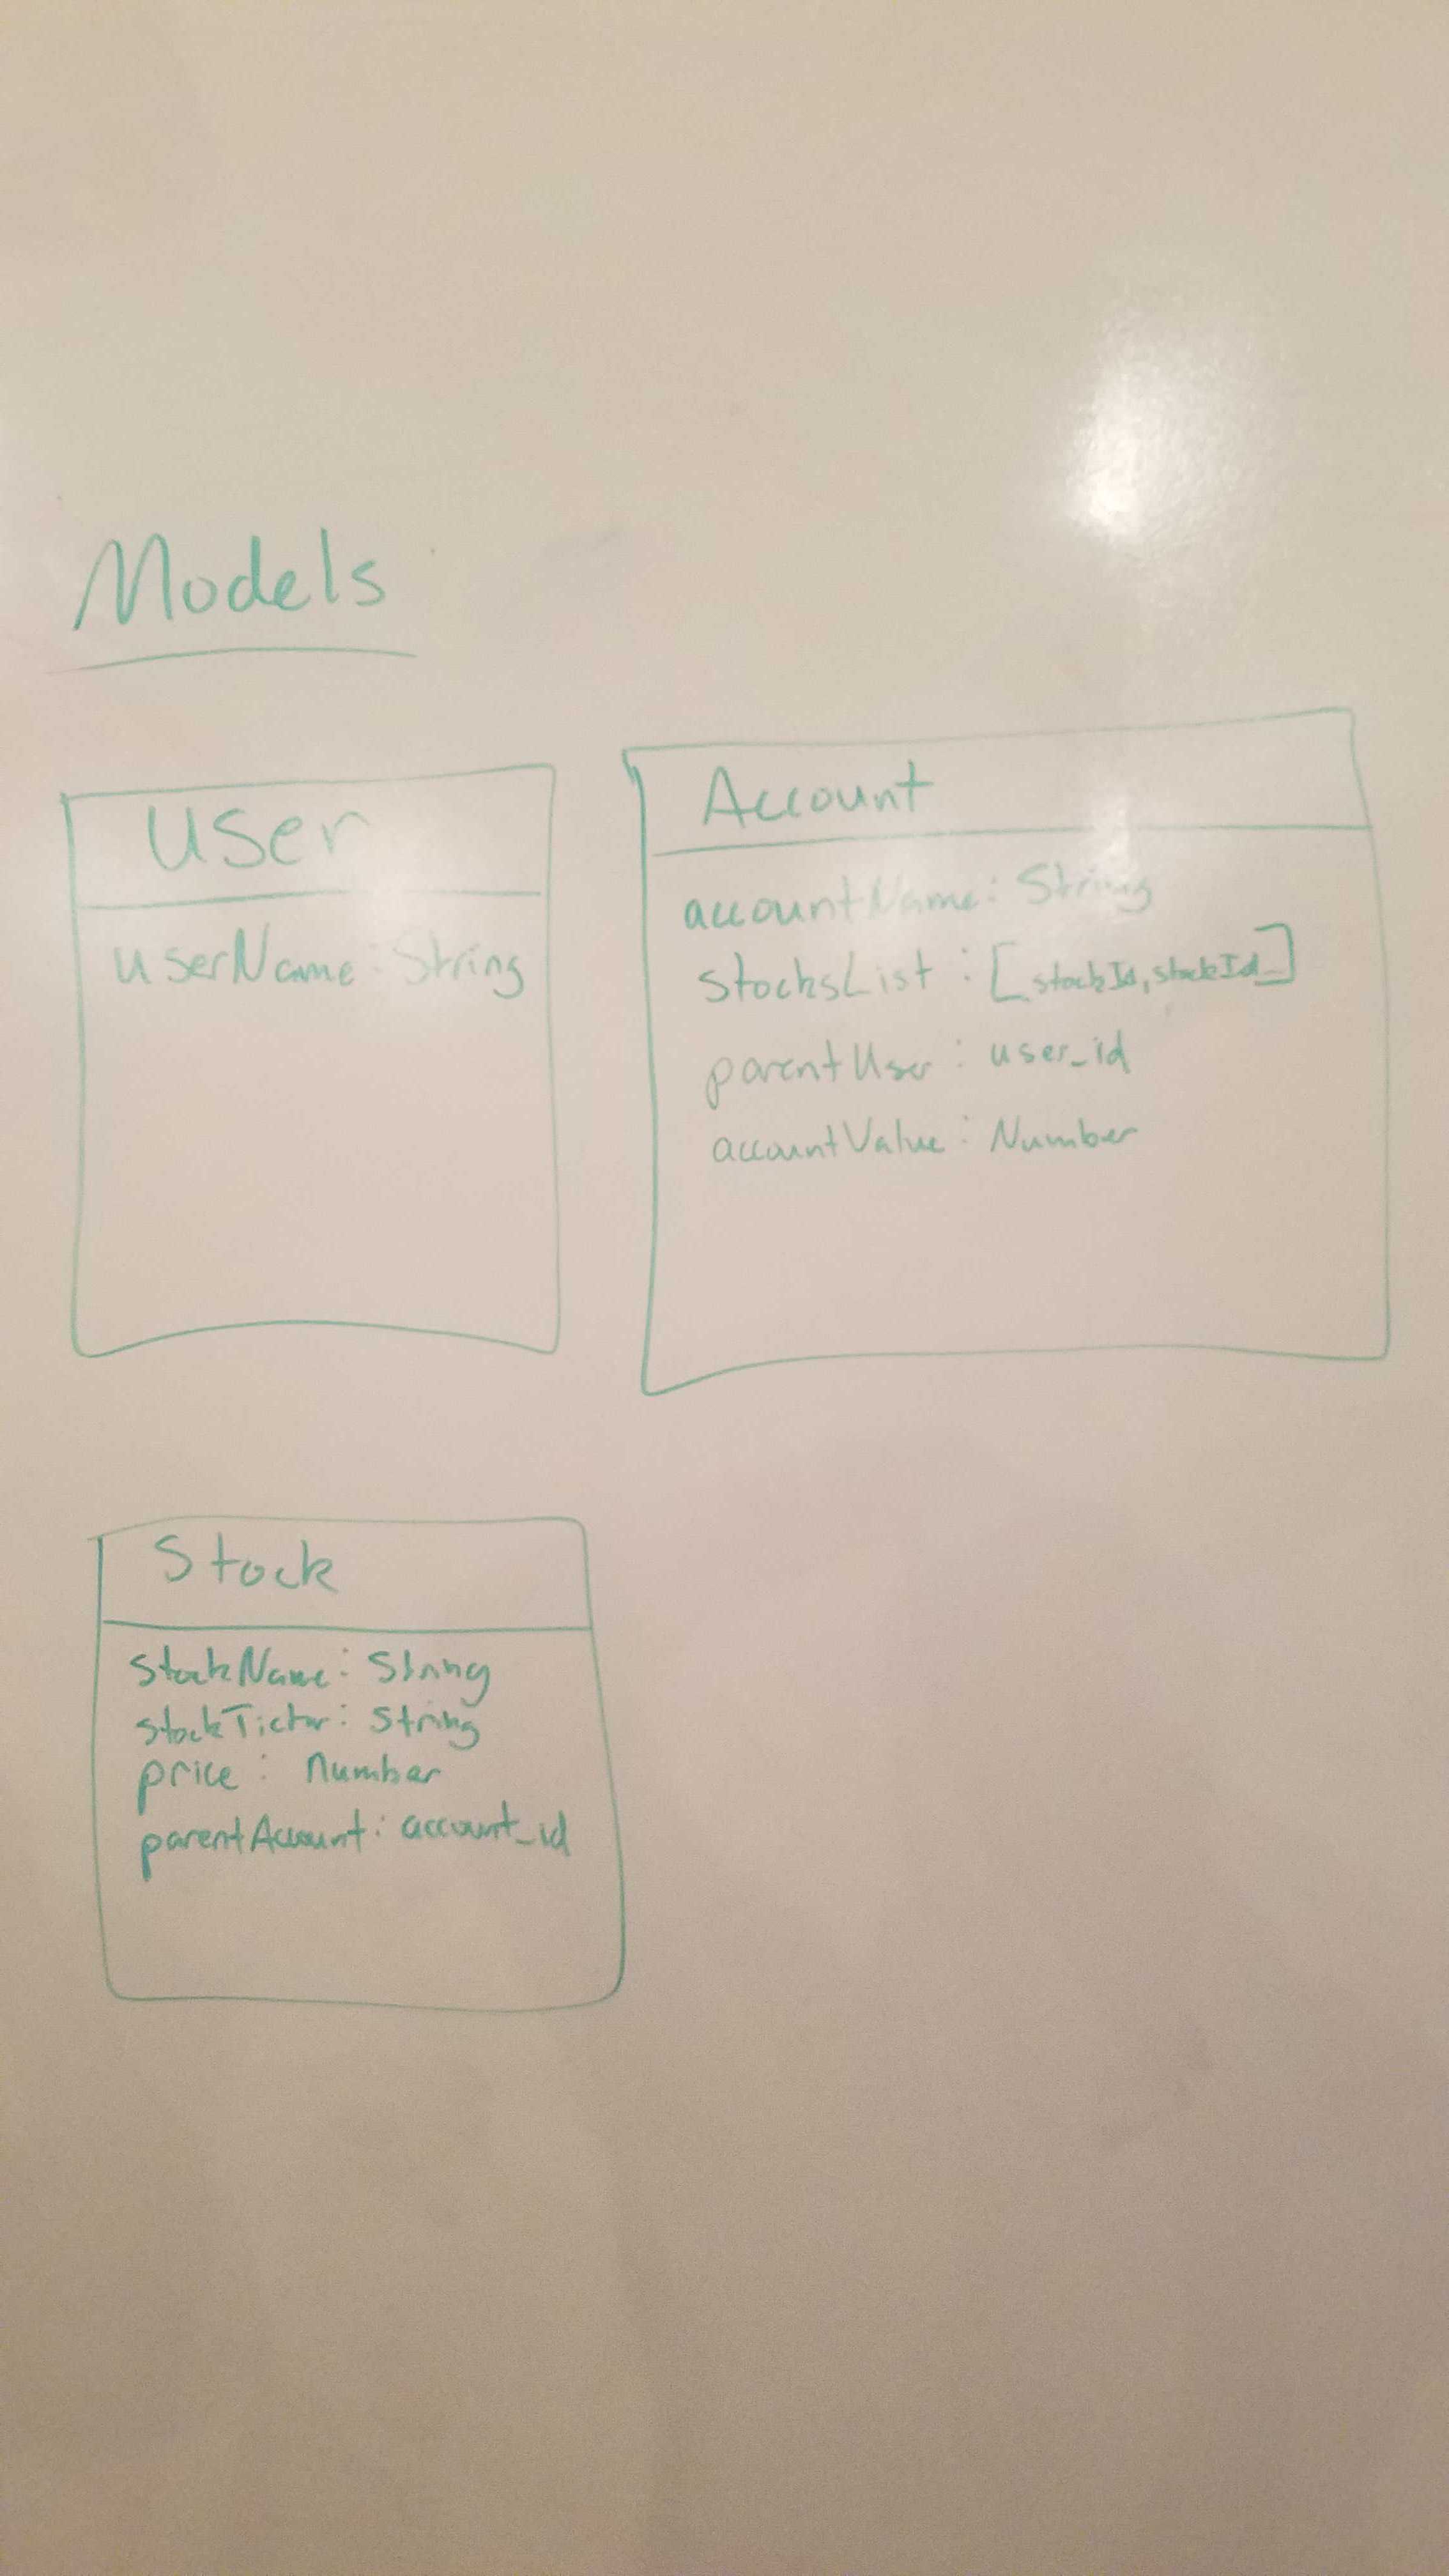 Models
User
userName: String
Account
accountName: String
stocksList: [stockId, stockId]
parentUser: user_id
accountValue: Number
Stock
stockName: String
stockTicker: String
price: Number
parentAccount: account_id